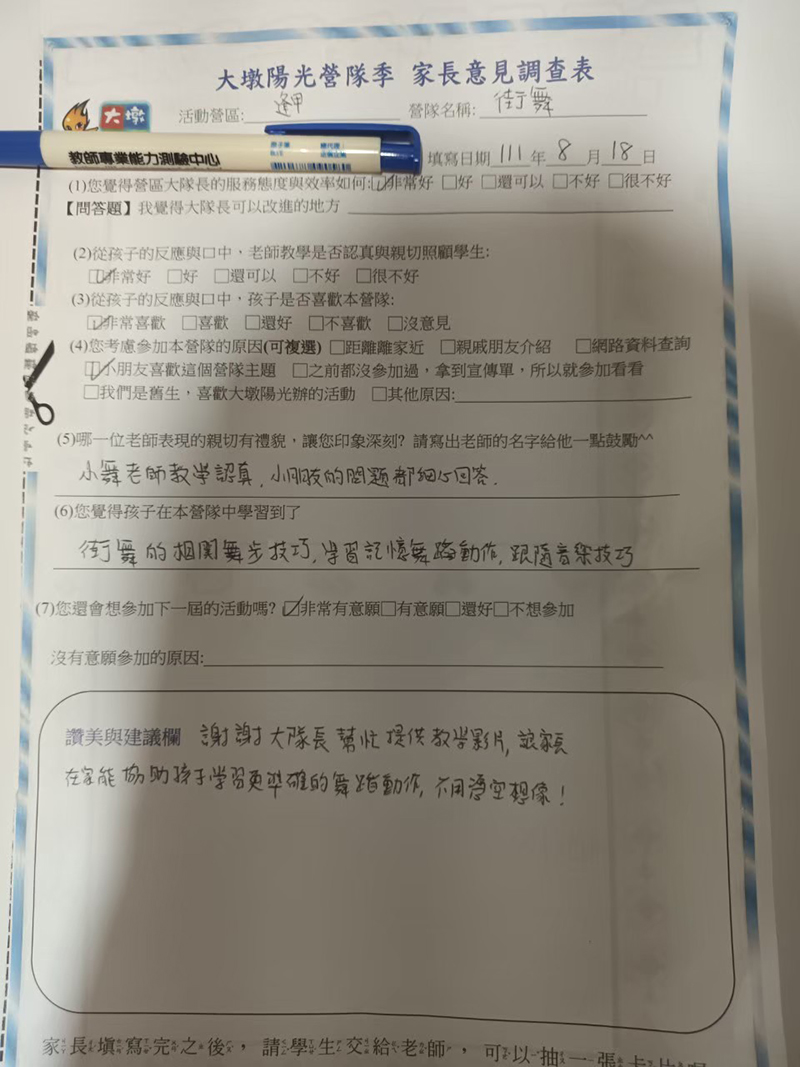 大墩陽光營隊季 家長意見調查表
大墩
活動營區: 逢甲 營隊名稱: 街舞
教師專業能力測驗中心
填寫日期 111 年 8 月 18 日
(1)您覺得營區大隊長的服務態度與效率如何:☑非常好 □好 □還可以 □不好 □很不好
【問答題】我覺得大隊長可以改進的地方
(2)從孩子的反應與口中，老師教學是否認真與親切照顧學生:
☑非常好 □好 □還可以 □不好 □很不好
(3)從孩子的反應與口中，孩子是否喜歡本營隊:
☑非常喜歡 □喜歡 □還好 □不喜歡 □沒意見
(4)您考慮參加本營隊的原因(可複選) □距離離家近 □親戚朋友介紹 □網路資料查詢
☑小朋友喜歡這個營隊主題 □之前都沒參加過，拿到宣傳單，所以就參加看看
□我們是舊生，喜歡大墩陽光辦的活動 □其他原因:
(5)哪一位老師表現的親切有禮貌，讓您印象深刻? 請寫出老師的名字給他一點鼓勵^^
小舞老師教學認真, 小朋友的問題都細心回答.
(6)您覺得孩子在本營隊中學習到了
街舞的相關舞步技巧, 學習記憶舞蹈動作, 跟隨音樂技巧
(7)您還會想參加下一屆的活動嗎? ☑非常有意願□有意願□還好□不想參加
沒有意願參加的原因:
讚美與建議欄 謝謝大隊長幫忙提供教學影片, 讓家長
在家能協助孩子學習更準確的舞蹈動作, 不用憑空想像!
家長填寫完之後，請學生交給老師，可以抽一張卡片